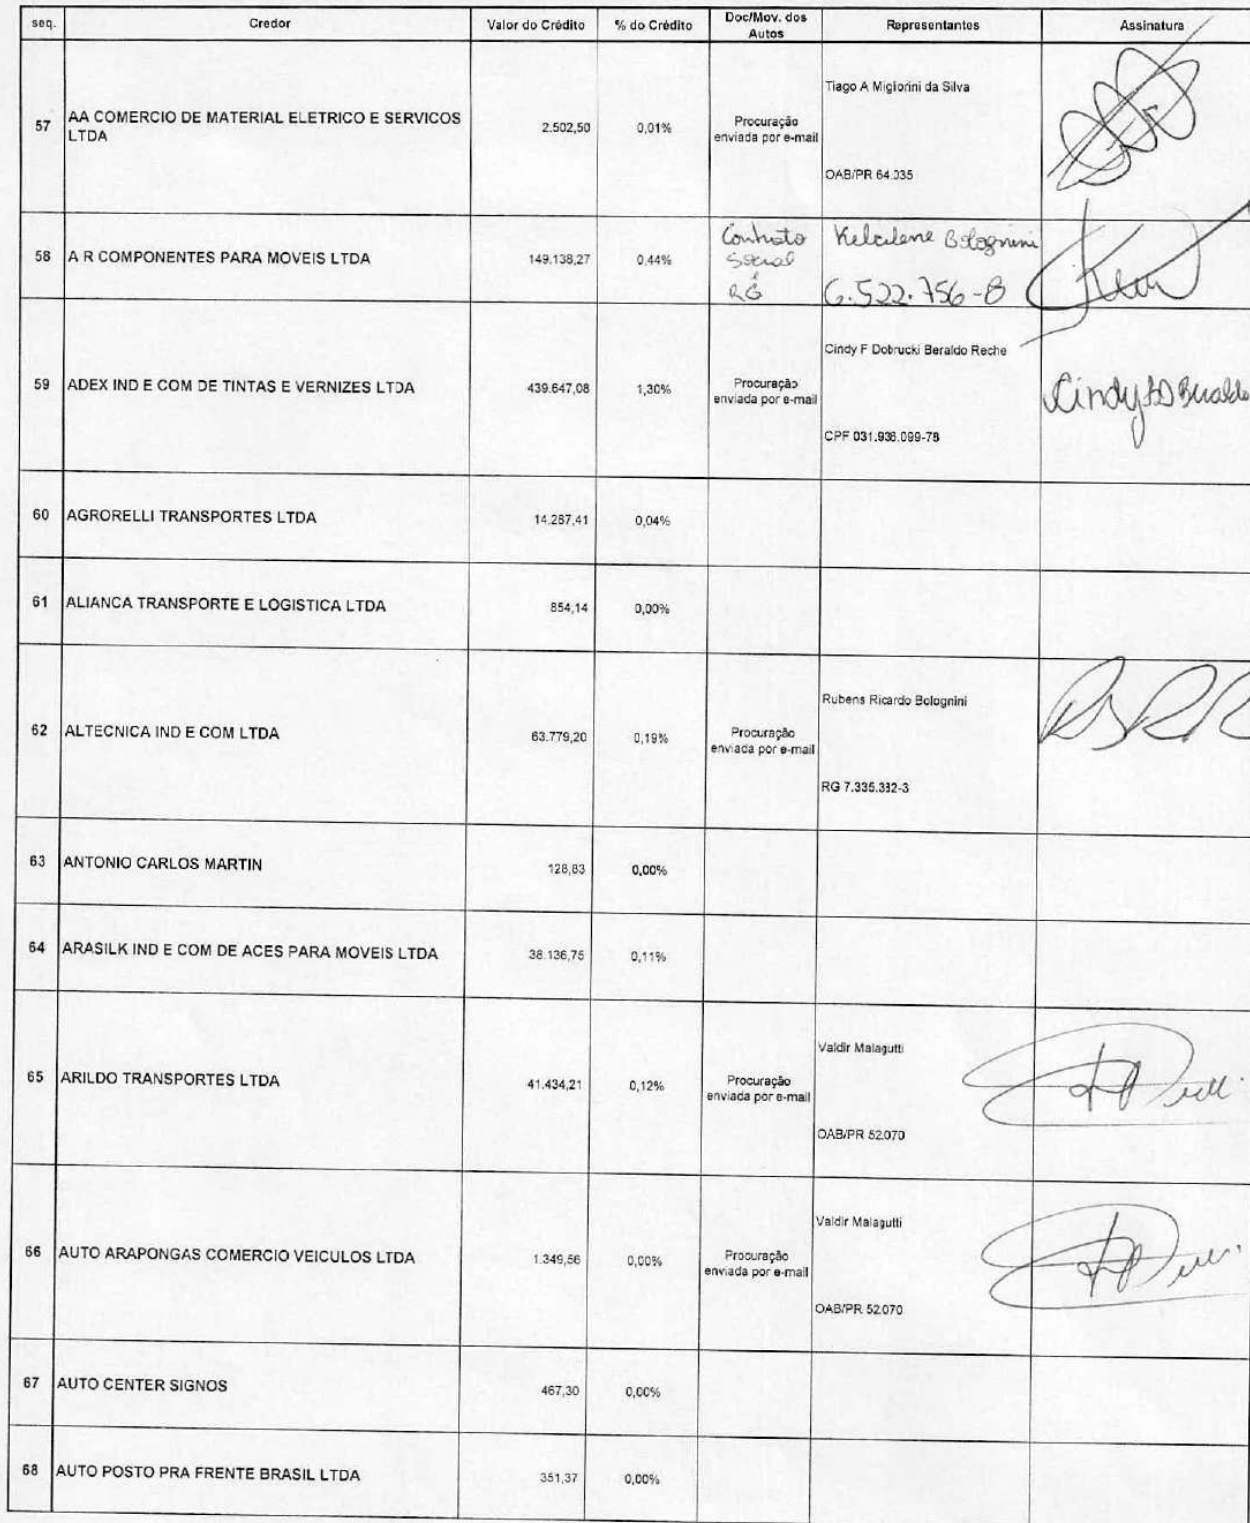 seq. Credor Valor do Crédito % do Crédito Doc/Mov. dos Autos Representantes Assinatura
57 AA COMERCIO DE MATERIAL ELETRICO E SERVICOS LTDA 2.502,50 0,01% Procuração enviada por e-mail Tiago A Migliorini da Silva OAB/PR 64.035
58 A R COMPONENTES PARA MOVEIS LTDA 149.138,27 0,44% Contrato Social RG Kelcilene Bolognini 6.522.756-8
59 ADEX IND E COM DE TINTAS E VERNIZES LTDA 439.647,08 1,30% Procuração enviada por e-mail Cindy F Dobrucki Beraldo Reche CPF 031.936.099-78 Cindy
60 AGRORELLI TRANSPORTES LTDA 14.287,41 0,04%
61 ALIANCA TRANSPORTE E LOGISTICA LTDA 854,14 0,00%
62 ALTECNICA IND E COM LTDA 63.779,20 0,19% Procuração enviada por e-mail Rubens Ricardo Bolognini RG 7.335.332-3
63 ANTONIO CARLOS MARTIN 128,83 0,00%
64 ARASILK IND E COM DE ACES PARA MOVEIS LTDA 38.136,75 0,11%
65 ARILDO TRANSPORTES LTDA 41.434,21 0,12% Procuração enviada por e-mail Valdir Malagutti OAB/PR 52.070
66 AUTO ARAPONGAS COMERCIO VEICULOS LTDA 1.349,56 0,00% Procuração enviada por e-mail Valdir Malagutti OAB/PR 52.070
67 AUTO CENTER SIGNOS 467,30 0,00%
68 AUTO POSTO PRA FRENTE BRASIL LTDA 351,37 0,00%